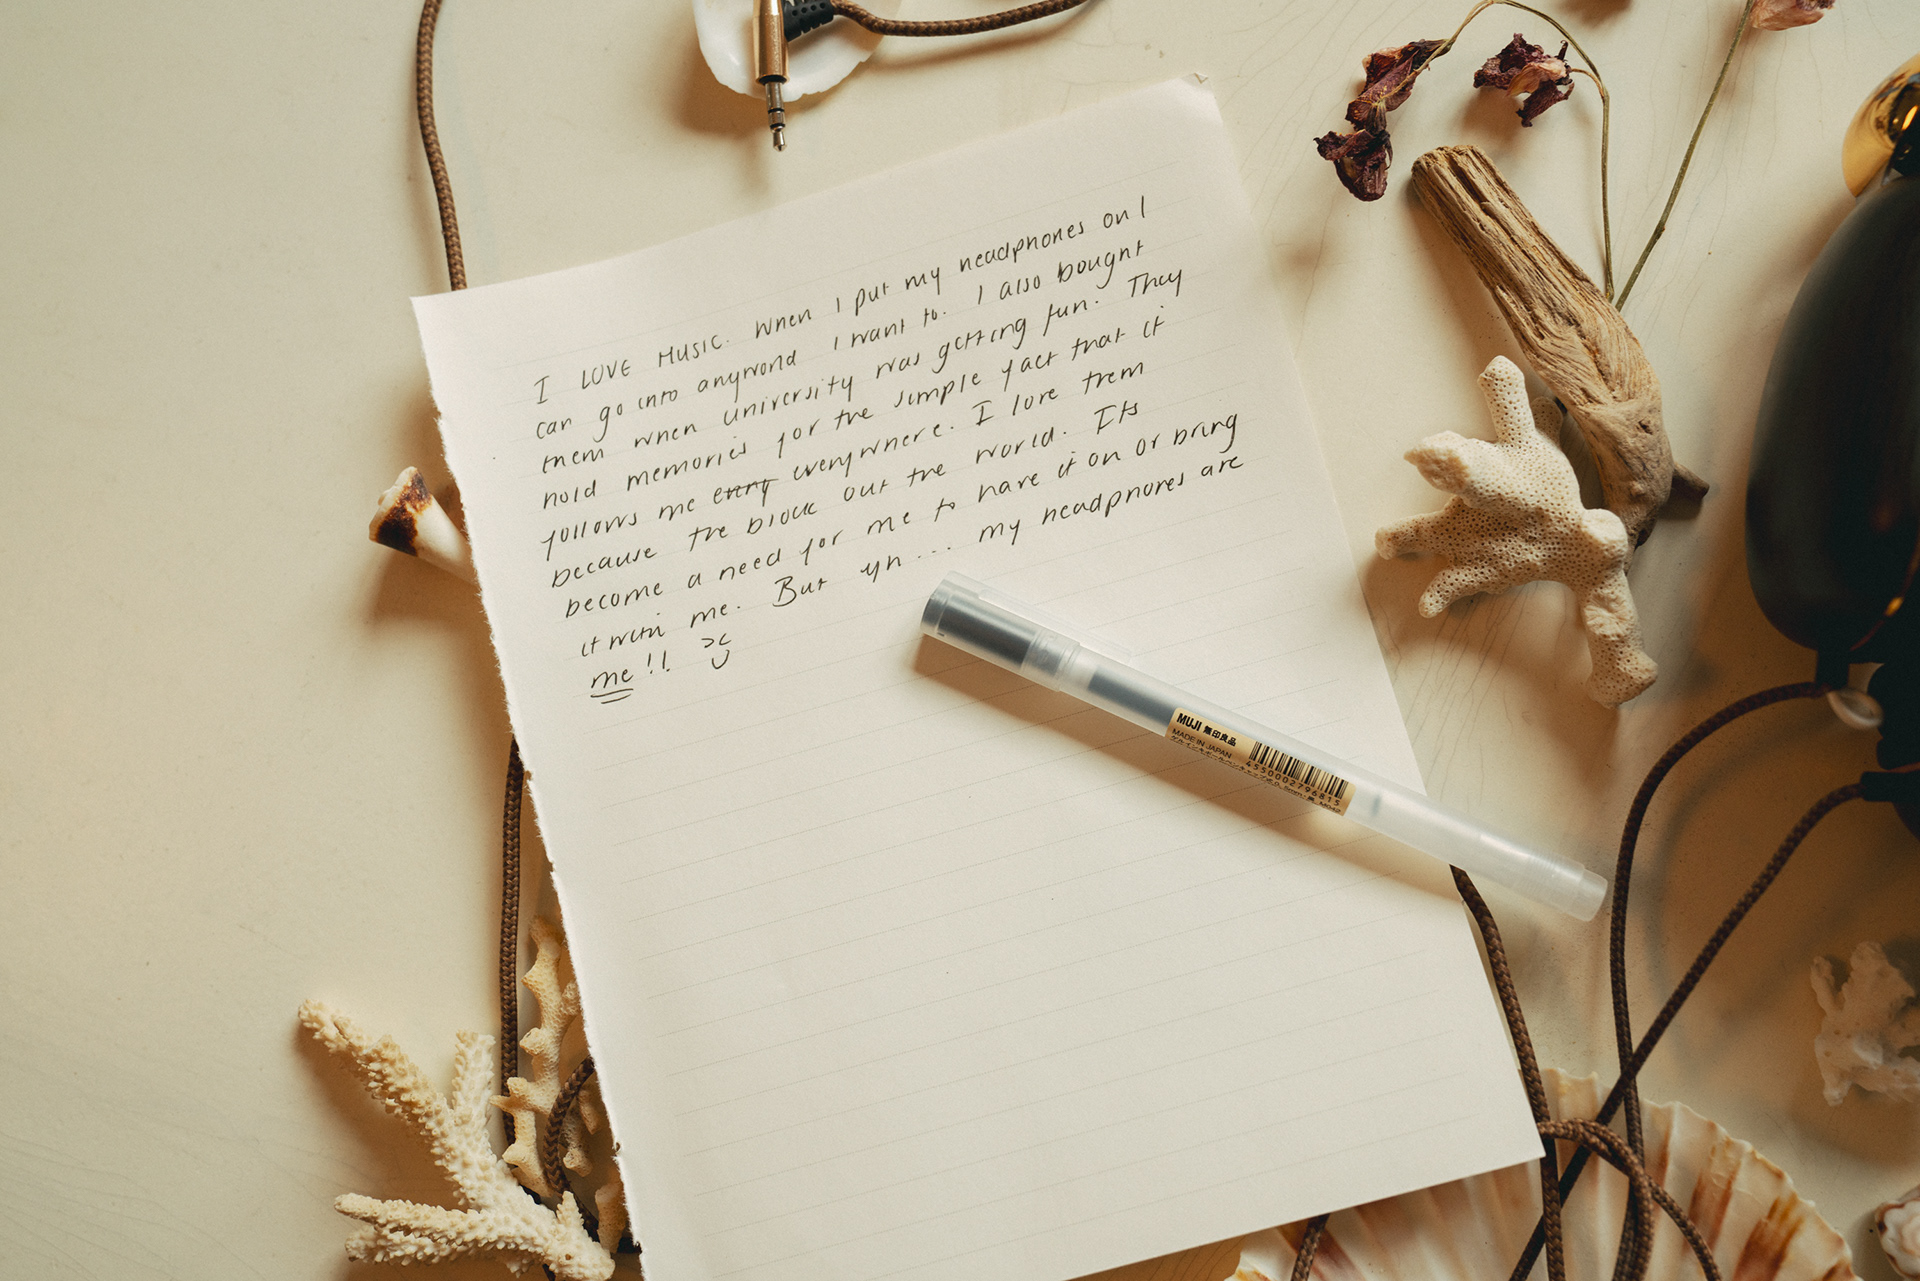 I LOVE MUSIC. When I put my headphones on I
can go into anyworld I want to. I also bought
them when university was getting fun. They
hold memories for the simple fact that it
follows me every everywhere. I love them
because the block out the world. Its
become a need for me to have it on or bring
it with me. But yh... my headphones are
me!!
MUJI 無印良品
MADE IN JAPAN
4550002796815